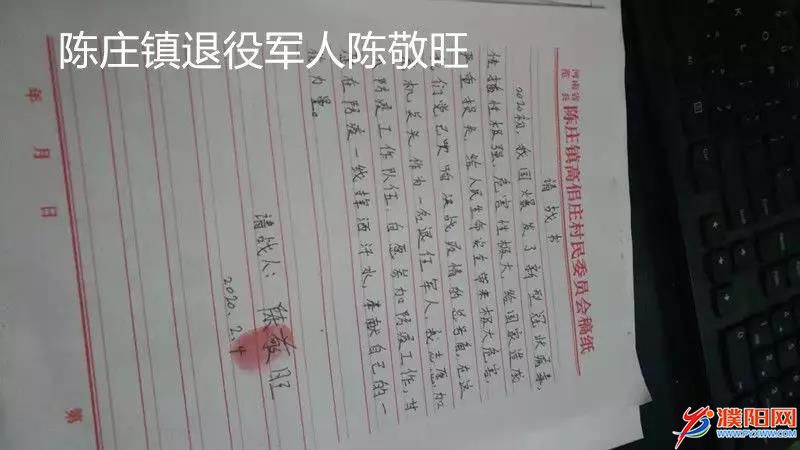 陈庄镇退役军人陈敬旺
河南省
范县
陈庄镇高佀庄村民委员会稿纸
请战书
2020初,我国爆发了新型冠状病毒,
传播性极强,危害性极大,给国家造成
严重损失,给人民生命安全带来极大危害,
们党已吹响决战疫情的总号角,在这
机关头,作为一名退伍军人,我志愿加
防疫工作队伍,自愿参加防疫工作,甘
在防疫一线挥洒汗水,奉献自己的一
力量。
请战人:陈敬旺
2020.2.4
年 月 日
第
濮阳网
WWW.PYXWW.COM